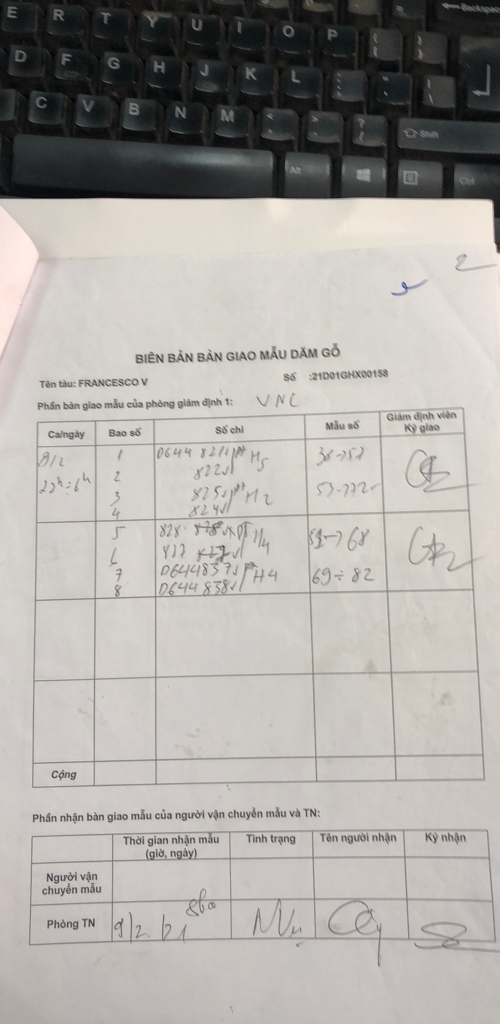 E R T Y U I O P
Backspace
D F G H J K L
C V B N M
Shift
Alt
Ctrl
2
BIÊN BẢN BÀN GIAO MẪU DĂM GỖ
Tên tàu: FRANCESCO V
Số :21D01GHX00158
Phần bàn giao mẫu của phòng giám định 1: VNC
Ca/ngày Bao số Số chì Mẫu số Giám định viên Ký giao
8/2 1 D644 821 H5
22h÷6h 2 822
3 825 H2
4 824
5 828 H4
6 837
7 D644837 H4 69÷82
8 D644838
Cộng
Phần nhận bàn giao mẫu của người vận chuyển mẫu và TN:
Thời gian nhận mẫu (giờ, ngày) Tình trạng Tên người nhận Ký nhận
Người vận chuyển mẫu
Phòng TN 9/2.21